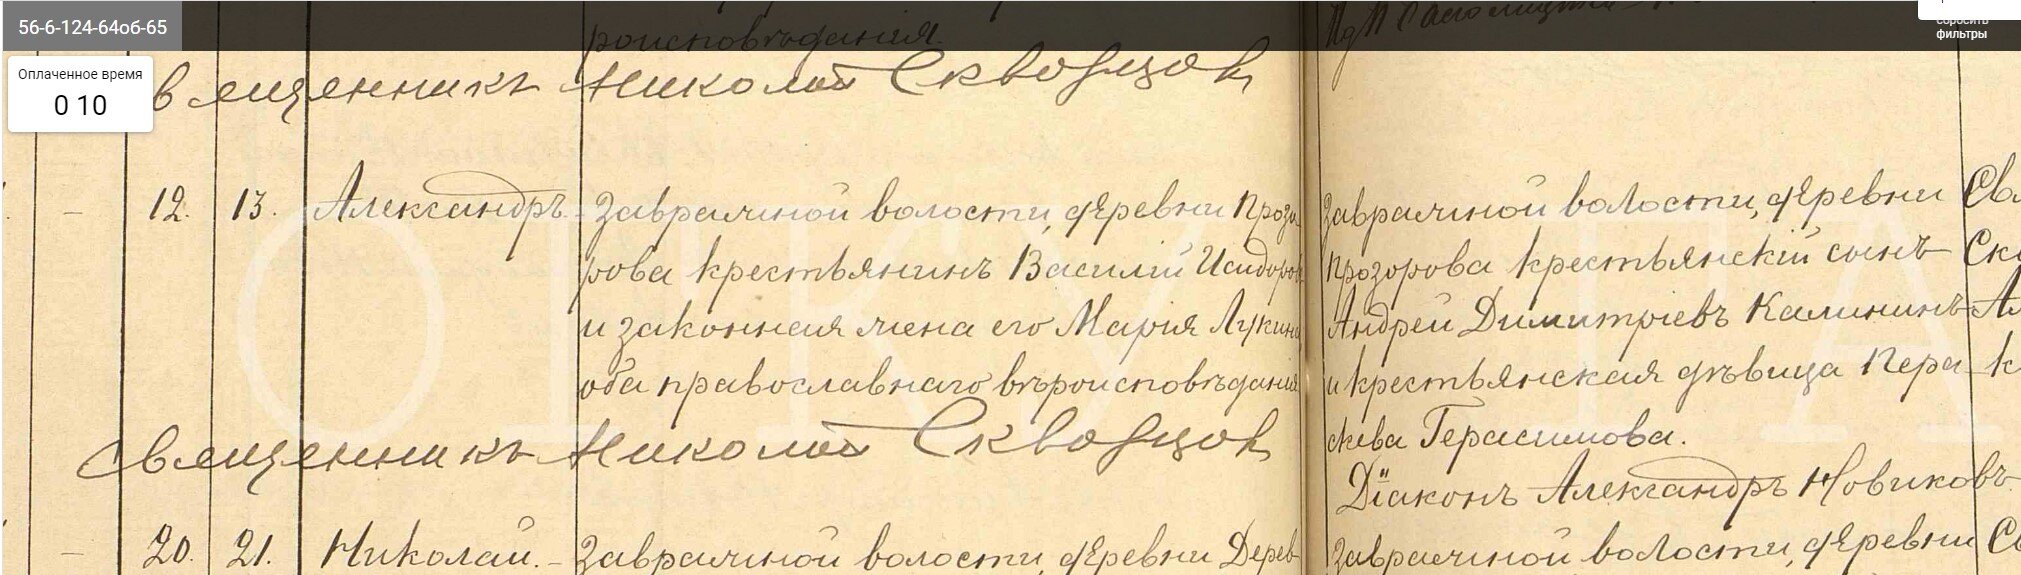 56-6-124-64об-65
сбросить
фильтры
Оплаченное время
0 10
роисповѣданія.
Священникъ Николай Скворцов
12. 13. Александръ. Завражной волости, деревни Прозо
рова крестьянинъ Василій Исидоров
и законная жена его Марія Лукина
оба православнаго вѣроисповѣданія
Священникъ Николай Скворцов
20. 21. Николай. Завражной волости, деревни Дерев
Завражной волости, деревни
Прозорова крестьянскій сынъ
Андрей Димитріевъ Калининъ
и крестьянская дѣвица Пера
скева Герасимова.
Діаконъ Александръ Новиковъ
Завражной волости, деревни
ОГКУ ГА